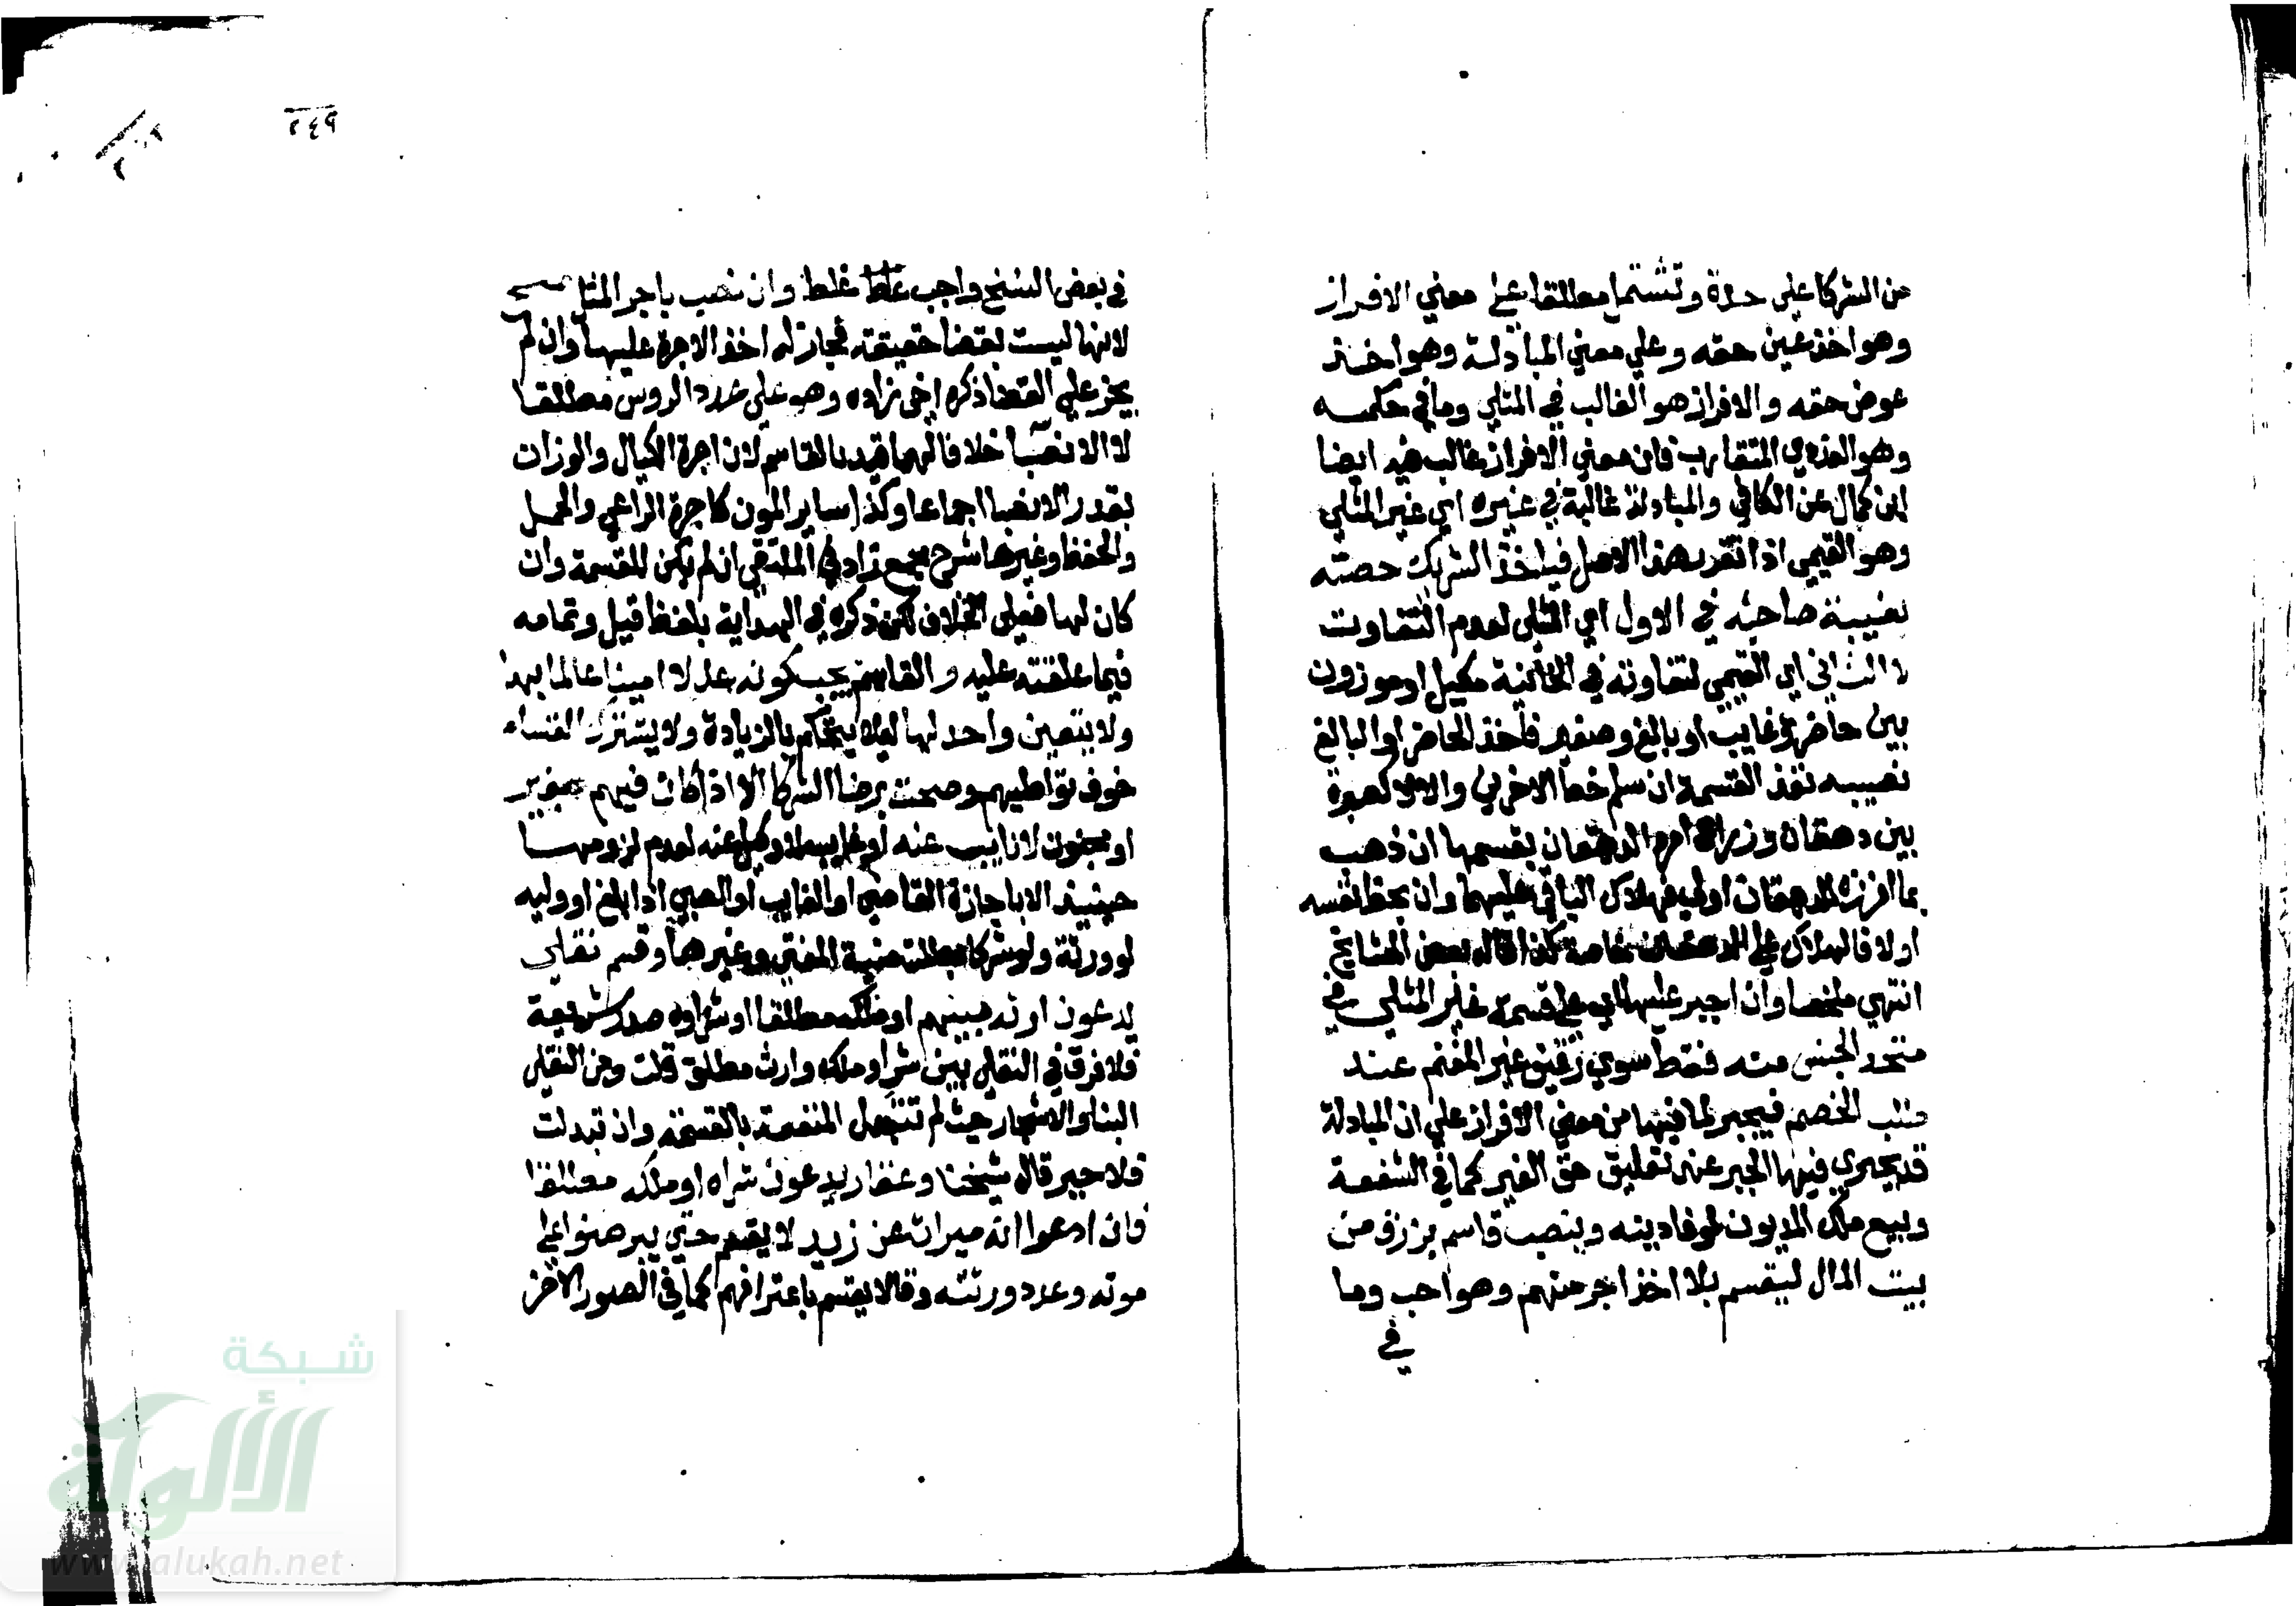 من الشركا على حدة وتشتمل مطلقا على معني الافراز
وهو اخذ عين حقه وعلي معني المبادلة وهو اخذ
عوض حقه والافراز هو الغالب في المثلي وما في حكمه
وهو العددي المتقارب فان معني الافراز غالب فيه ايضا
ابن كمال عن الكافي والمبادلة غالبة في غيره اي غير المثلي
وهو القيمي اذا تقرر هذا الاصل فياخذ الشريك حصته
بغيبة صاحبه في الاول اي المثلي لعدم التفاوت
لا الثاني اي القيمي لتفاوته في الخانية مكيل او موزون
بين حاضر وغايب او بالغ وصغير فاخذ الحاضر او البالغ
نصيبه نفذ القسمة ان سلم حظ الاخرين والا لا كصبرة
بين دهقان وزراع امره الدهقان بقسمها ان ذهب
بما افرزه للدهقان اولا فهلاك الباقي عليهما وان بحظ نفسه
اولا فالهلاك علي الدهقان خاصة كذا قاله بعض المشايخ
انتهي ملخصا وان اجبر عليها اي علي قسمة غير المثلي في
متحد الجنس منه فقط سوي رقيق غير المغنم عند
طلب الخصم فيجبر لما فيها من معني الافراز علي ان المبادلة
قد يجري فيها الجبر عند تعليق حق الغير كما في الشفعة
وبيع ملك المديون لوفا دينه وينصب قاسم يرزق من
بيت المال ليقسم بلا اخذ اجر منهم وهو احب وما
في
٢٤٩
في بعض النسخ واجب غلط وان نصب باجر المثل صح
لانها ليست بقضا حقيقة فجاز له اخذ الاجرة عليها وان لم
يجز علي القضا ذكره اخي زاده وهو علي عدد الروس مطلقا
لا الانصبا خلافا لهما قيد بالقاسم لان اجرة الكيال والوزان
بقدر الانصبا اجماعا وكذا ساير المون كاجرة الراعي والحمل
والحفظ وغيرها شرح مجمع زاد في الملتقي ان لم يكن للقسمة وان
كان لها فعلي الخلاف لكن ذكره في الهداية بلفظ قيل وتمامه
فيما علقته عليه والقاسم يجب كونه عدلا امينا عالما بها
ولا يتعين واحد لها ليلا يتحكم بالزيادة ولا يشترك القسام
خوف تواطيهم وصحت برضا الشركا الا اذا كان فيهم صغير
او مجنون لا نايب عنه او غايب لا وكيل عنه لعدم لزومها
حينيذ الا باجازة القاضي او الغايب او الصبي اذا بلغ او وليه
لو ورثة ولو شركا بطلت منية المفتي وغيرها وقسم نقلي
يدعون ارثه بينهم او ملكه مطلقا او شراوه صدر شريعة
فلا فرق في النقلي بين شرا وملك وارث مطلق قلت ومن النقلي
البنا والاشجار حيث لم تتبدل المنفعة بالقسمة وان تبدلت
فلا جبر قاله شيخنا وعقار يدعون شراه او ملكه مطلقا
فان ادعوا انه ميراث عن زيد لا يقسم حتي يبرهنوا علي
موته وعدد ورثته وقالا يقسم باعترافهم كما في الصور الاخر
شبكة
الألوكة
www.alukah.net